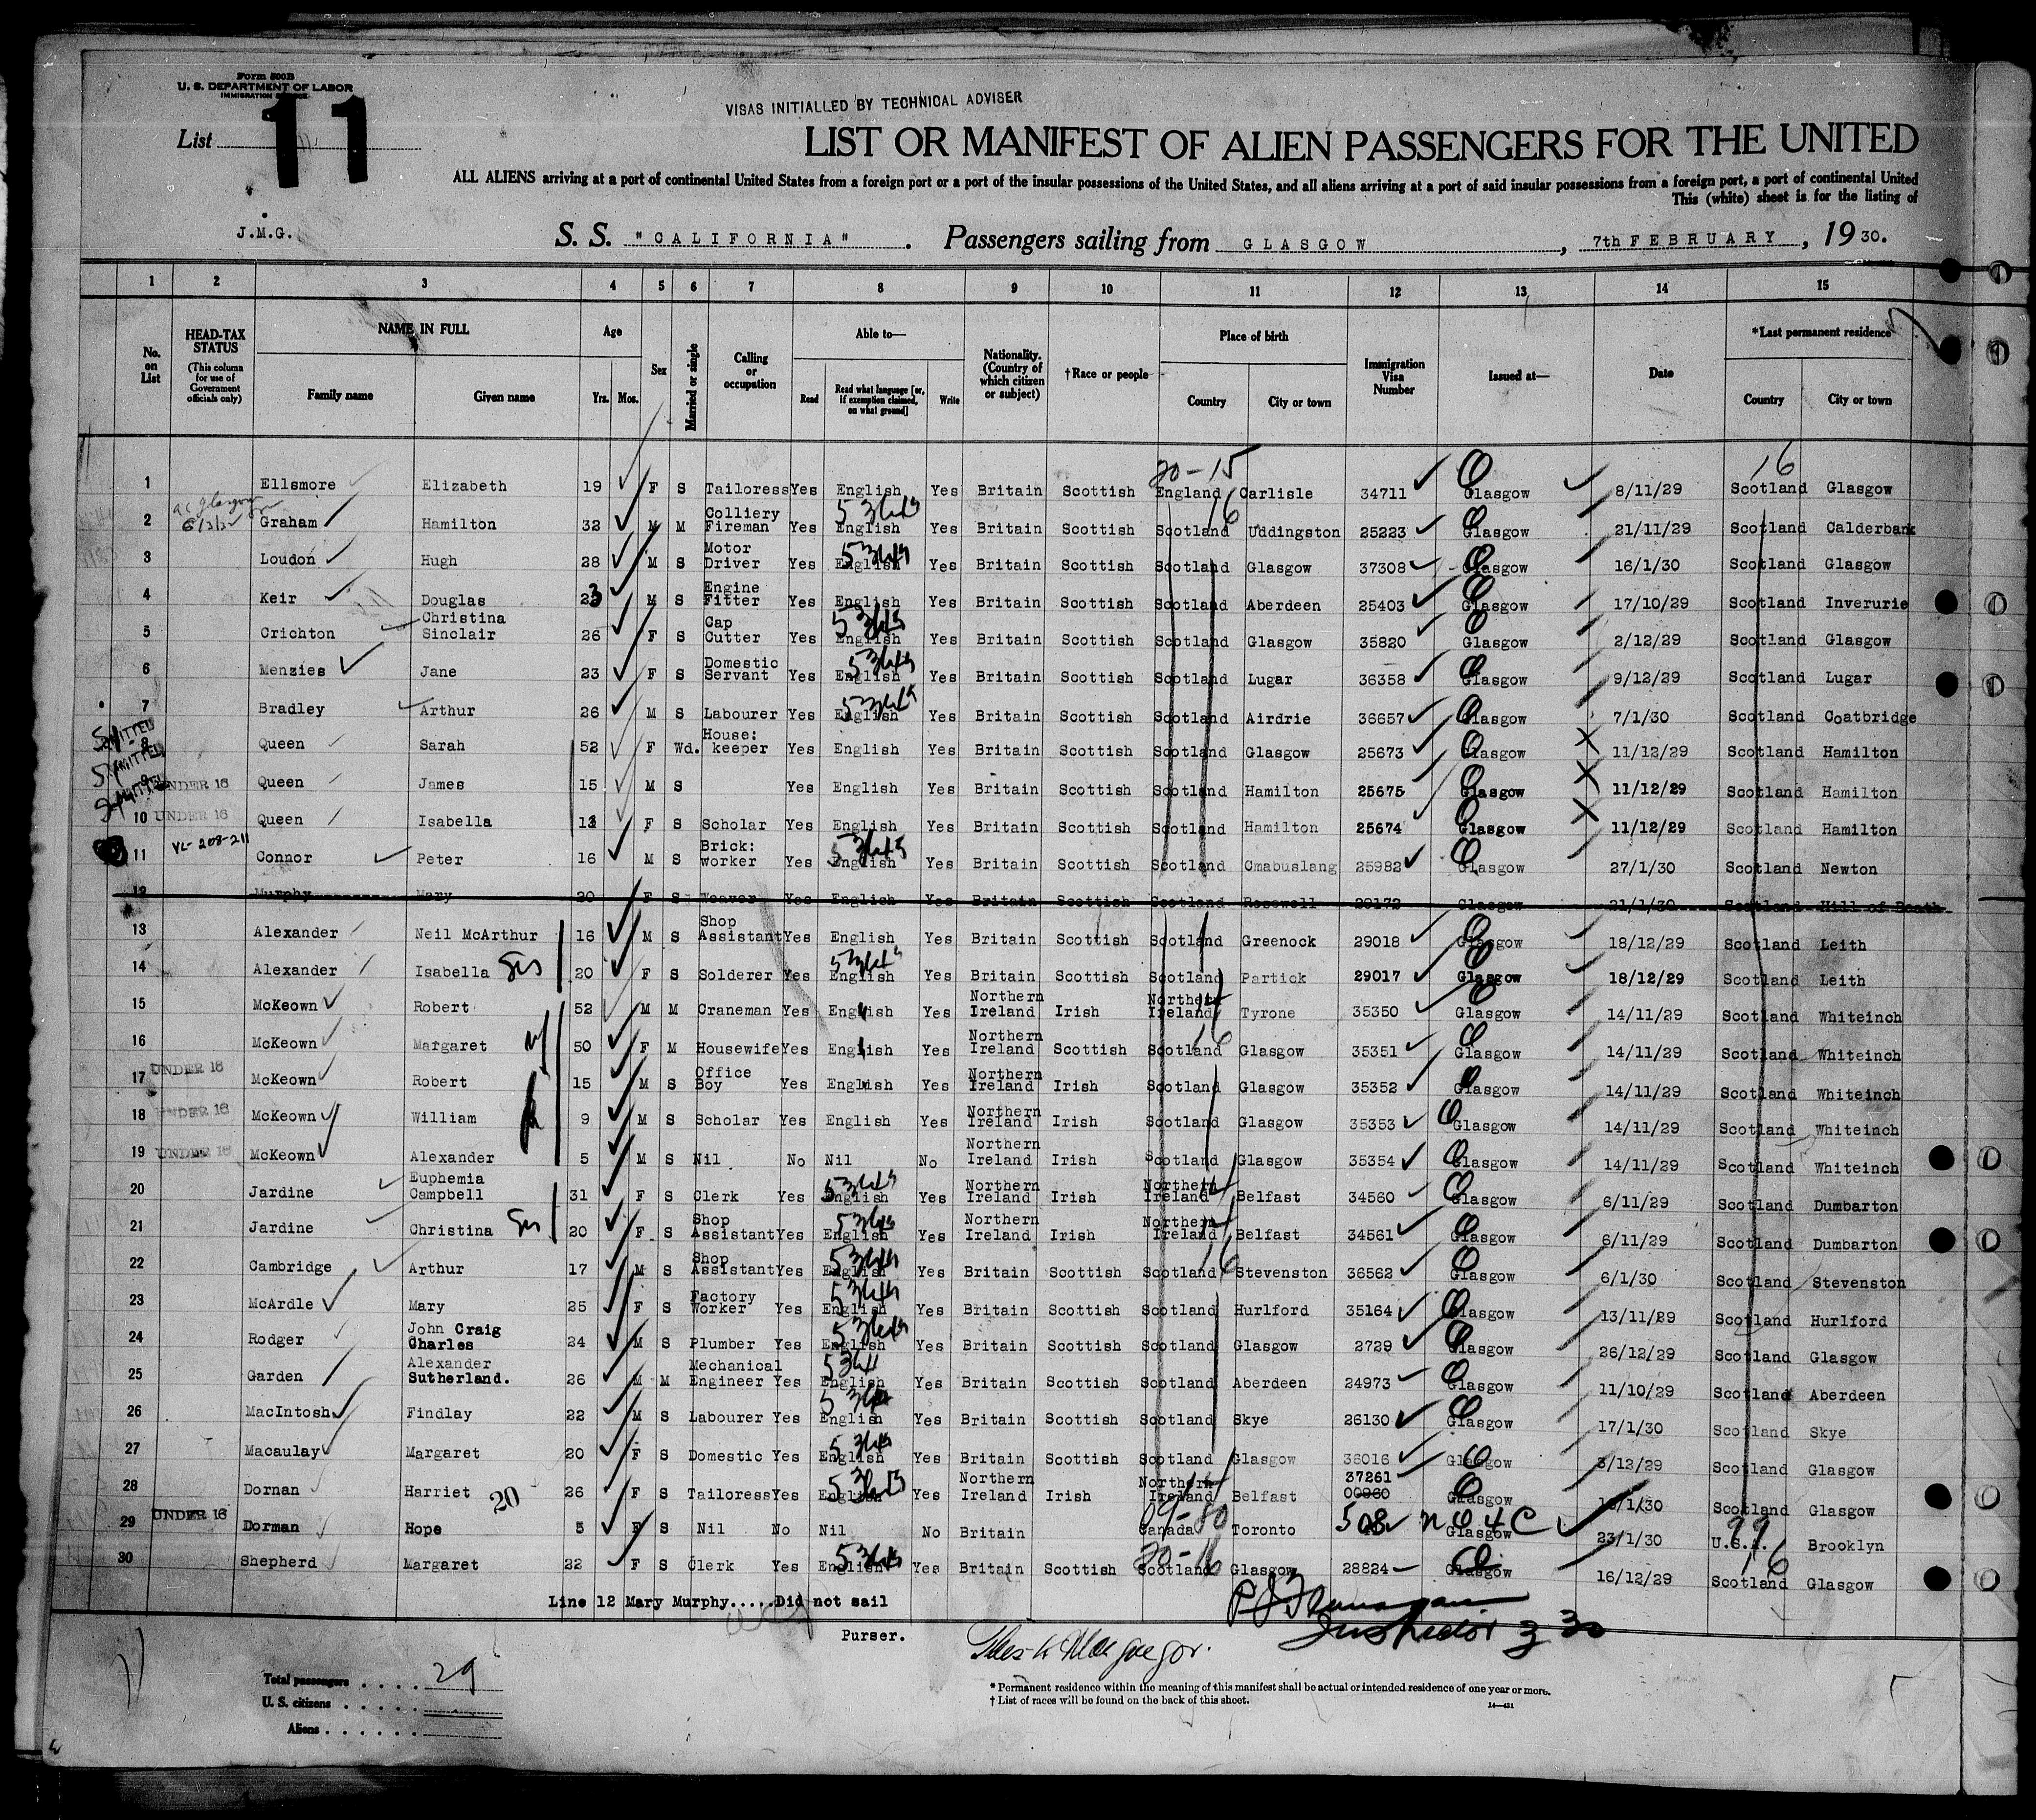 Form 500B
U. S. DEPARTMENT OF LABOR
IMMIGRATION SERVICE
List 11
VISAS INITIALLED BY TECHNICAL ADVISER
LIST OR MANIFEST OF ALIEN PASSENGERS FOR THE UNITED
ALL ALIENS arriving at a port of continental United States from a foreign port or a port of the insular possessions of the United States, and all aliens arriving at a port of said insular possessions from a foreign port, a port of continental United
This (white) sheet is for the listing of
J.M.G.
S. S. "CALIFORNIA" . Passengers sailing from GLASGOW , 7th FEBRUARY , 19 30.
1 2 3 4 5 6 7 8 9 10 11 12 13 14 15
No. on List
HEAD-TAX STATUS (This column for use of Government officials only)
NAME IN FULL Family name Given name
Age Yrs. Mos.
Sex
Married or single
Calling or occupation
Able to— Read Read what language [or, if exemption claimed, on what ground] Write
Nationality. (Country of which citizen or subject)
†Race or people
Place of birth Country City or town
Immigration Visa Number
Issued at—
Date
*Last permanent residence Country City or town
20-15 16
1 Ellsmore Elizabeth 19 F S Tailoress Yes English Yes Britain Scottish England Carlisle 34711 Glasgow 8/11/29 Scotland Glasgow
2 Graham Hamilton 32 M M Colliery Fireman Yes English Yes Britain Scottish Scotland 16 Uddingston 25223 Glasgow 21/11/29 Scotland Calderbank
3 Loudon Hugh 28 M S Motor Driver Yes English Yes Britain Scottish Scotland Glasgow 37308 Glasgow 16/1/30 Scotland Glasgow
4 Keir Douglas 23 M S Engine Fitter Yes English Yes Britain Scottish Scotland Aberdeen 25403 Glasgow 17/10/29 Scotland Inverurie
5 Crichton Christina Sinclair 26 F S Cap Cutter Yes English Yes Britain Scottish Scotland Glasgow 35820 Glasgow 2/12/29 Scotland Glasgow
6 Menzies Jane 23 F S Domestic Servant Yes English Yes Britain Scottish Scotland Lugar 36358 Glasgow 9/12/29 Scotland Lugar
7 Bradley Arthur 26 M S Labourer Yes English Yes Britain Scottish Scotland Airdrie 36657 Glasgow 7/1/30 Scotland Coatbridge
8 Queen Sarah 52 F Wd. House: keeper Yes English Yes Britain Scottish Scotland Glasgow 25673 Glasgow 11/12/29 Scotland Hamilton
9 UNDER 16 Queen James 15 M S Yes English Yes Britain Scottish Scotland Hamilton 25675 Glasgow 11/12/29 Scotland Hamilton
10 UNDER 16 Queen Isabella F S Scholar Yes English Yes Britain Scottish Scotland Hamilton 25674 Glasgow 11/12/29 Scotland Hamilton
11 VL-208-211 Connor Peter 16 M S Brick: worker Yes English Yes Britain Scottish Scotland Cmabuslang 25982 Glasgow 27/1/30 Scotland Newton
12 Murphy Mary 20 F S Weaver Yes English Yes Britain Scottish Scotland Rosewell 29172 Glasgow 21/1/30 Scotland Hill of Beath
13 Alexander Neil McArthur 16 M S Shop Assistant Yes English Yes Britain Scottish Scotland Greenock 29018 Glasgow 18/12/29 Scotland Leith
14 Alexander Isabella Sis 20 F S Solderer Yes English Yes Britain Scottish Scotland Partick 29017 Glasgow 18/12/29 Scotland Leith
15 McKeown Robert 52 M M Craneman Yes English Yes Northern Ireland Irish Northern Ireland Tyrone 35350 Glasgow 14/11/29 Scotland Whiteinch
16 McKeown Margaret 50 F M Housewife Yes English Yes Northern Ireland Scottish Scotland Glasgow 35351 Glasgow 14/11/29 Scotland Whiteinch
17 UNDER 16 McKeown Robert 15 M S Office Boy Yes English Yes Northern Ireland Irish Scotland Glasgow 35352 Glasgow 14/11/29 Scotland Whiteinch
18 UNDER 16 McKeown William 9 M S Scholar Yes English Yes Northern Ireland Irish Scotland Glasgow 35353 Glasgow 14/11/29 Scotland Whiteinch
19 UNDER 16 McKeown Alexander 5 M S Nil No Nil No Northern Ireland Irish Scotland Glasgow 35354 Glasgow 14/11/29 Scotland Whiteinch
20 Jardine Euphemia Campbell 31 F S Clerk Yes English Yes Northern Ireland Irish Northern Ireland Belfast 34560 Glasgow 6/11/29 Scotland Dumbarton
21 Jardine Christina Sis 20 F S Shop Assistant Yes English Yes Northern Ireland Irish Northern Ireland Belfast 34561 Glasgow 6/11/29 Scotland Dumbarton
22 Cambridge Arthur 17 M S Shop Assistant Yes English Yes Britain Scottish Scotland 16 Stevenston 36562 Glasgow 6/1/30 Scotland Stevenston
23 McArdle Mary 25 F S Factory Worker Yes English Yes Britain Scottish Scotland Hurlford 35164 Glasgow 13/11/29 Scotland Hurlford
24 Rodger John Craig Charles 24 M S Plumber Yes English Yes Britain Scottish Scotland Glasgow 2729 Glasgow 26/12/29 Scotland Glasgow
25 Garden Alexander Sutherland. 26 M M Mechanical Engineer Yes English Yes Britain Scottish Scotland Aberdeen 24973 Glasgow 11/10/29 Scotland Aberdeen
26 MacIntosh Findlay 22 M S Labourer Yes English Yes Britain Scottish Scotland Skye 26130 Glasgow 17/1/30 Scotland Skye
27 Macaulay Margaret 20 F S Domestic Yes English Yes Britain Scottish Scotland Glasgow 36016 Glasgow 3/12/29 Scotland Glasgow
28 Dornan Harriet 26 F S Tailoress Yes English Yes Northern Ireland Irish Northern Ireland Belfast 37261 00960 Glasgow /1/30 Scotland Glasgow
29 UNDER 16 Dorman Hope 20 5 F S Nil No Nil No Britain Canada Toronto 508 Glasgow 23/1/30 U.S.A. 99 Brooklyn
30 Shepherd Margaret 22 F S Clerk Yes English Yes Britain Scottish 20-16 Scotland Glasgow 28824 Glasgow 16/12/29 Scotland 16 Glasgow
Line 12 Mary Murphy.....Did not sail
Purser.
Inspector
Total passengers . . . . 29
U. S. citizens . . . . .
Aliens . . . . . .
* Permanent residence within the meaning of this manifest shall be actual or intended residence of one year or more.
† List of races will be found on the back of this sheet.
14—421